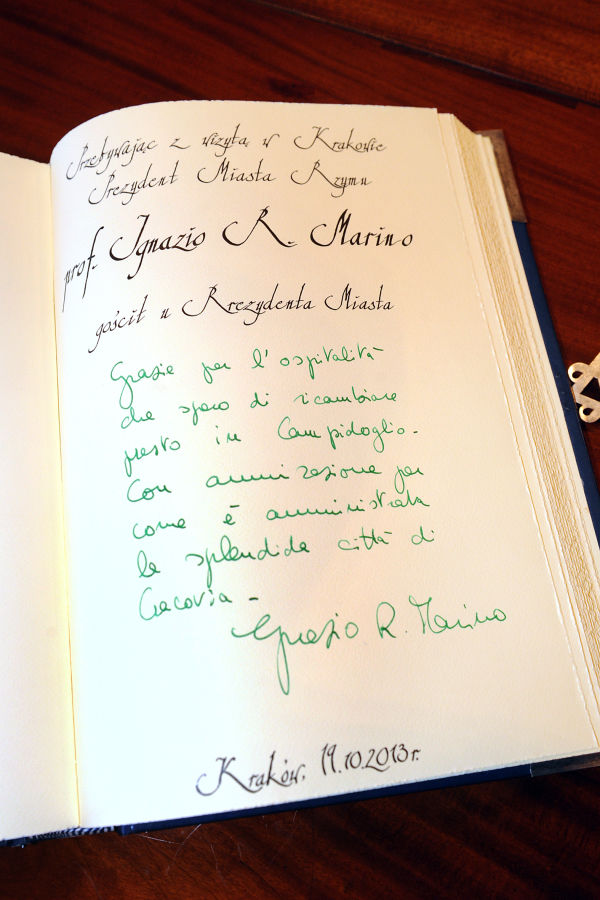 Przebywając z wizytą w Krakowie
Prezydent Miasta Rzymu
prof. Ignazio R. Marino
gościł u Prezydenta Miasta
Grazie per l'ospitalità
che spero di ricambiare
presto in Campidoglio.
Con ammirazione per
come è amministrata
la splendida città di
Cracovia -
Ignazio R. Marino
Kraków, 19.10.2013 r.